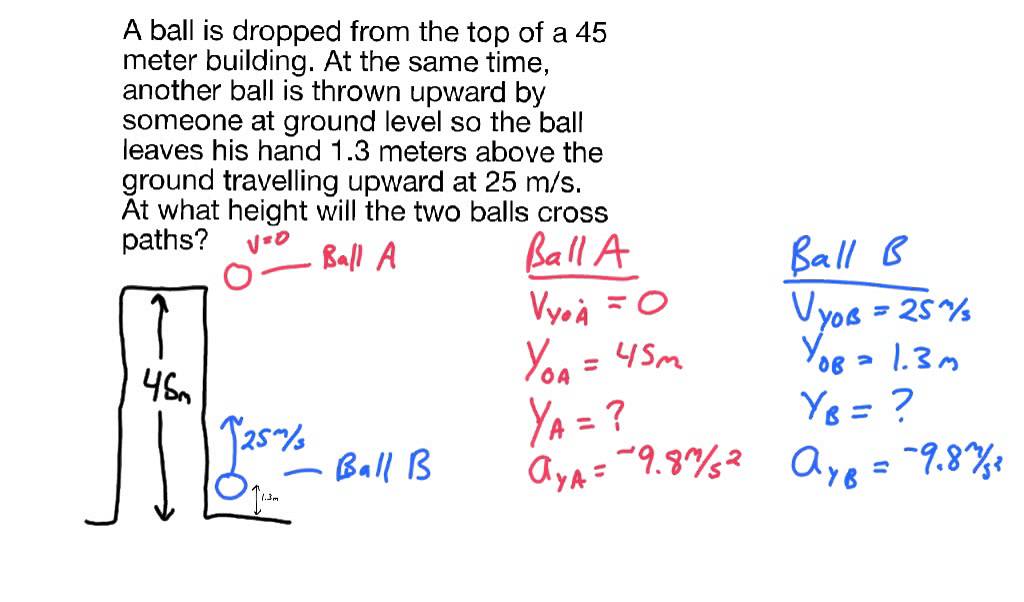 A ball is dropped from the top of a 45
meter building. At the same time,
another ball is thrown upward by
someone at ground level so the ball
leaves his hand 1.3 meters above the
ground travelling upward at 25 m/s.
At what height will the two balls cross
paths?
V=0
Ball A
45m
25 m/s
Ball B
1.3m
Ball A
Vy0A = 0
Y0A = 45m
YA = ?
ayA = -9.8 m/s²
Ball B
Vy0B = 25 m/s
Y0B = 1.3 m
YB = ?
ayB = -9.8 m/s²